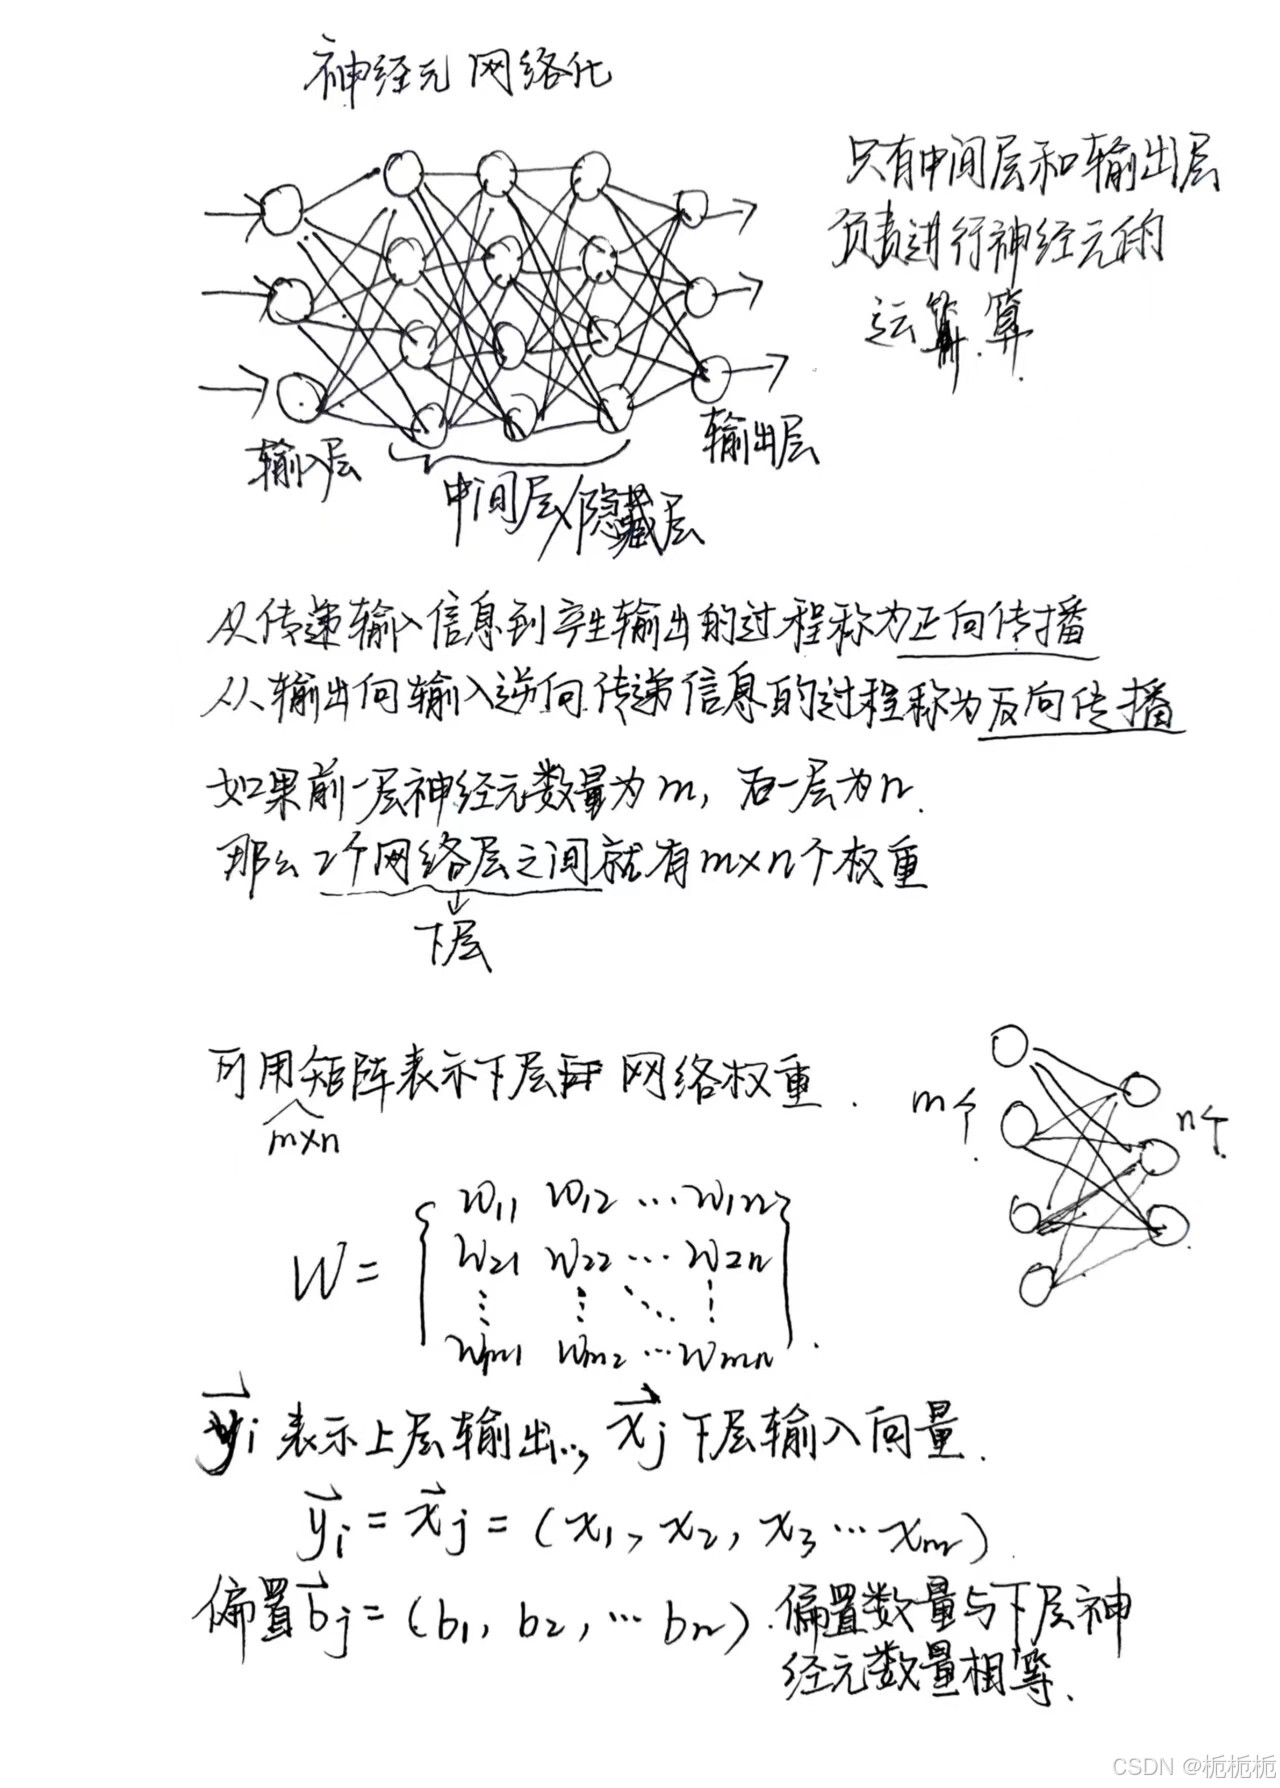 神经元网络化
只有中间层和输出层
负责进行神经元的
运算.算.
输入层
输出层
中间层/隐藏层
从传递输入信息到产生输出的过程称为正向传播
从输出向输入逆向传递信息的过程称为反向传播
如果前一层神经元数量为m, 后一层为n.
那么2个网络层之间就有m×n个权重
下层
可用矩阵表示下层 网络权重.
m×n
m个
n个
W = [ w11 w12 … w1n
w21 w22 … w2n
⋮ ⋮ ⋱ ⋮
wm1 wm2 … wmn ].
y⃗i 表示上层输出.., x⃗j 下层输入向量.
y⃗i = x⃗j = (x1, x2, x3 … xm)
偏置b⃗j = (b1, b2, … bn). 偏置数量与下层神
经元数量相等.
CSDN @栀栀栀